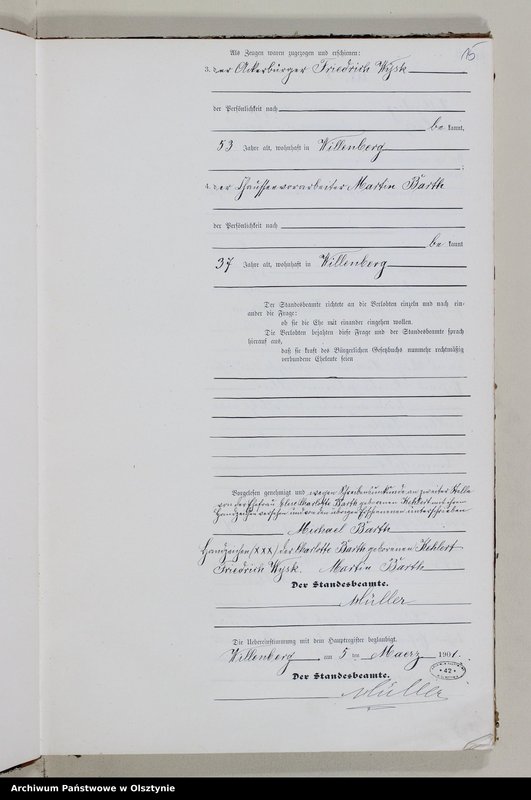 15
Als Zeugen waren zugezogen und erschienen:
3. der Ackerbürger Friedrich Wysk
der Persönlichkeit nach
be kannt,
53 Jahre alt, wohnhaft in Willenberg
;
4. der Chausseevorarbeiter Martin Barth
der Persönlichkeit nach
be kannt
37 Jahre alt, wohnhaft in Willenberg
Der Standesbeamte richtete an die Verlobten einzeln und nach ein-
ander die Frage:
ob sie die Ehe mit einander eingehen wollen.
Die Verlobten bejahten diese Frage und der Standesbeamte sprach
hierauf aus,
daß sie kraft des Bürgerlichen Gesetzbuchs nunmehr rechtmäßig
verbundene Eheleute seien
Vorgelesen, genehmigt und wegen Schreibensunkunde an zweiter Stelle
von der Ehefrau Charlotte Barth geborenen Kehlert mit ihrem
Handzeichen versehen und von den übrigen Erschienenen unterschrieben
Michael Barth
Handzeichen (XXX) der Charlotte Barth geborenen Kehlert
Friedrich Wysk. Martin Barth
Der Standesbeamte.
Müller
Die Uebereinstimmung mit dem Hauptregister beglaubigt.
Willenberg am 5 ten Maerz 1901.
42
Der Standesbeamte.
Müller
Archiwum Państwowe w Olsztynie